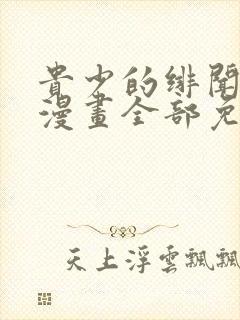 貴少的緋聞
漫畫全部免
天上浮雲飄飄